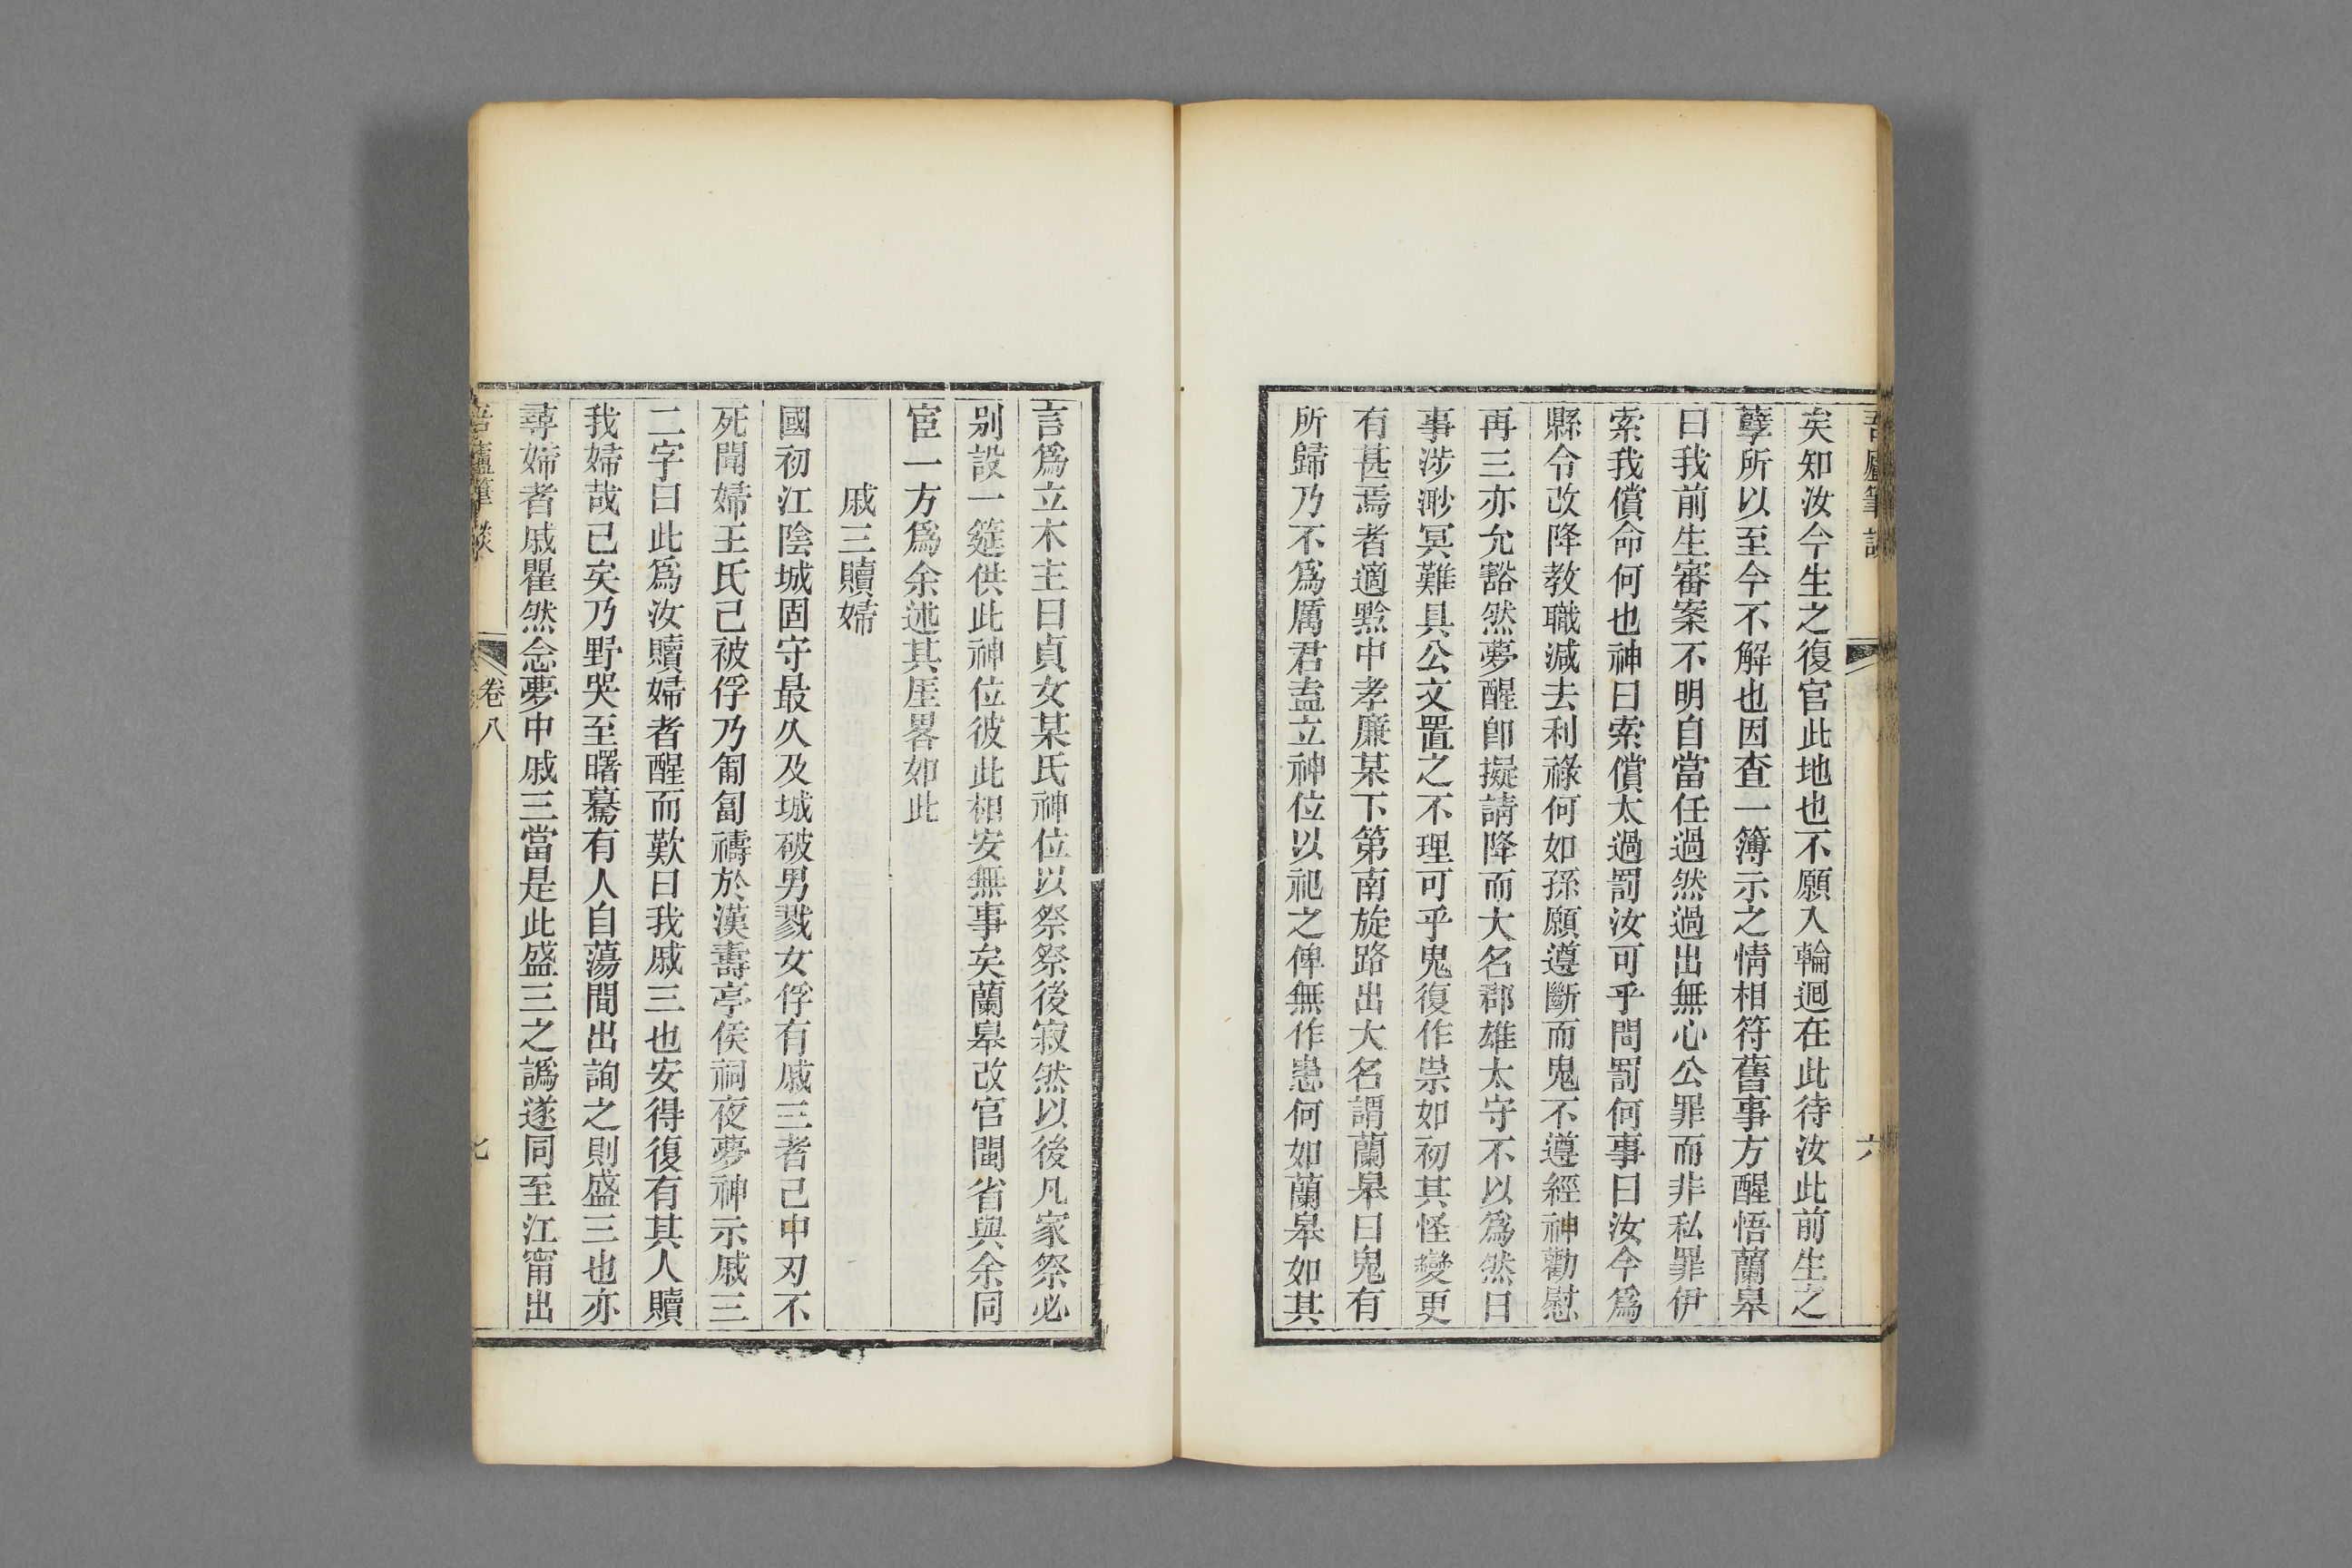 矣知汝今生之復官此地也不願入輪迴在此待汝此前生之
孽所以至今不解也因查一簿示之情相符舊事方醒悟蘭皋
曰我前生審案不明自當任過然過出無心公罪而非私罪伊
索我償命何也神曰索償太過罰汝可乎問罰何事曰汝今爲
縣令改降教職減去利祿何如孫願遵斷而鬼不遵經神勸慰
再三亦允豁然夢醒卽擬請降而大名郡雄太守不以爲然曰
事涉渺冥難具公文置之不理可乎鬼復作祟如初其怪變更
有甚焉者適黔中孝廉某下第南旋路出大名謂蘭皋曰鬼有
所歸乃不爲厲君盍立神位以祀之俾無作患何如蘭皋如其
六
言爲立木主曰貞女某氏神位以祭祭後寂然以後凡家祭必
别設一筵供此神位彼此相安無事矣蘭皋改官閩省與余同
宦一方爲余述其厓畧如此
戚三贖婦
國初江陰城固守最久及城破男戮女俘有戚三者已中刃不
死聞婦王氏已被俘乃匍匐禱於漢壽亭侯祠夜夢神示戚三
二字曰此爲汝贖婦者醒而歎曰我戚三也安得復有其人贖
我婦哉已矣乃野哭至曙驀有人自蕩間出詢之則盛三也亦
尋婦者戚瞿然念夢中戚三當是此盛三之譌遂同至江甯出
卷八
七